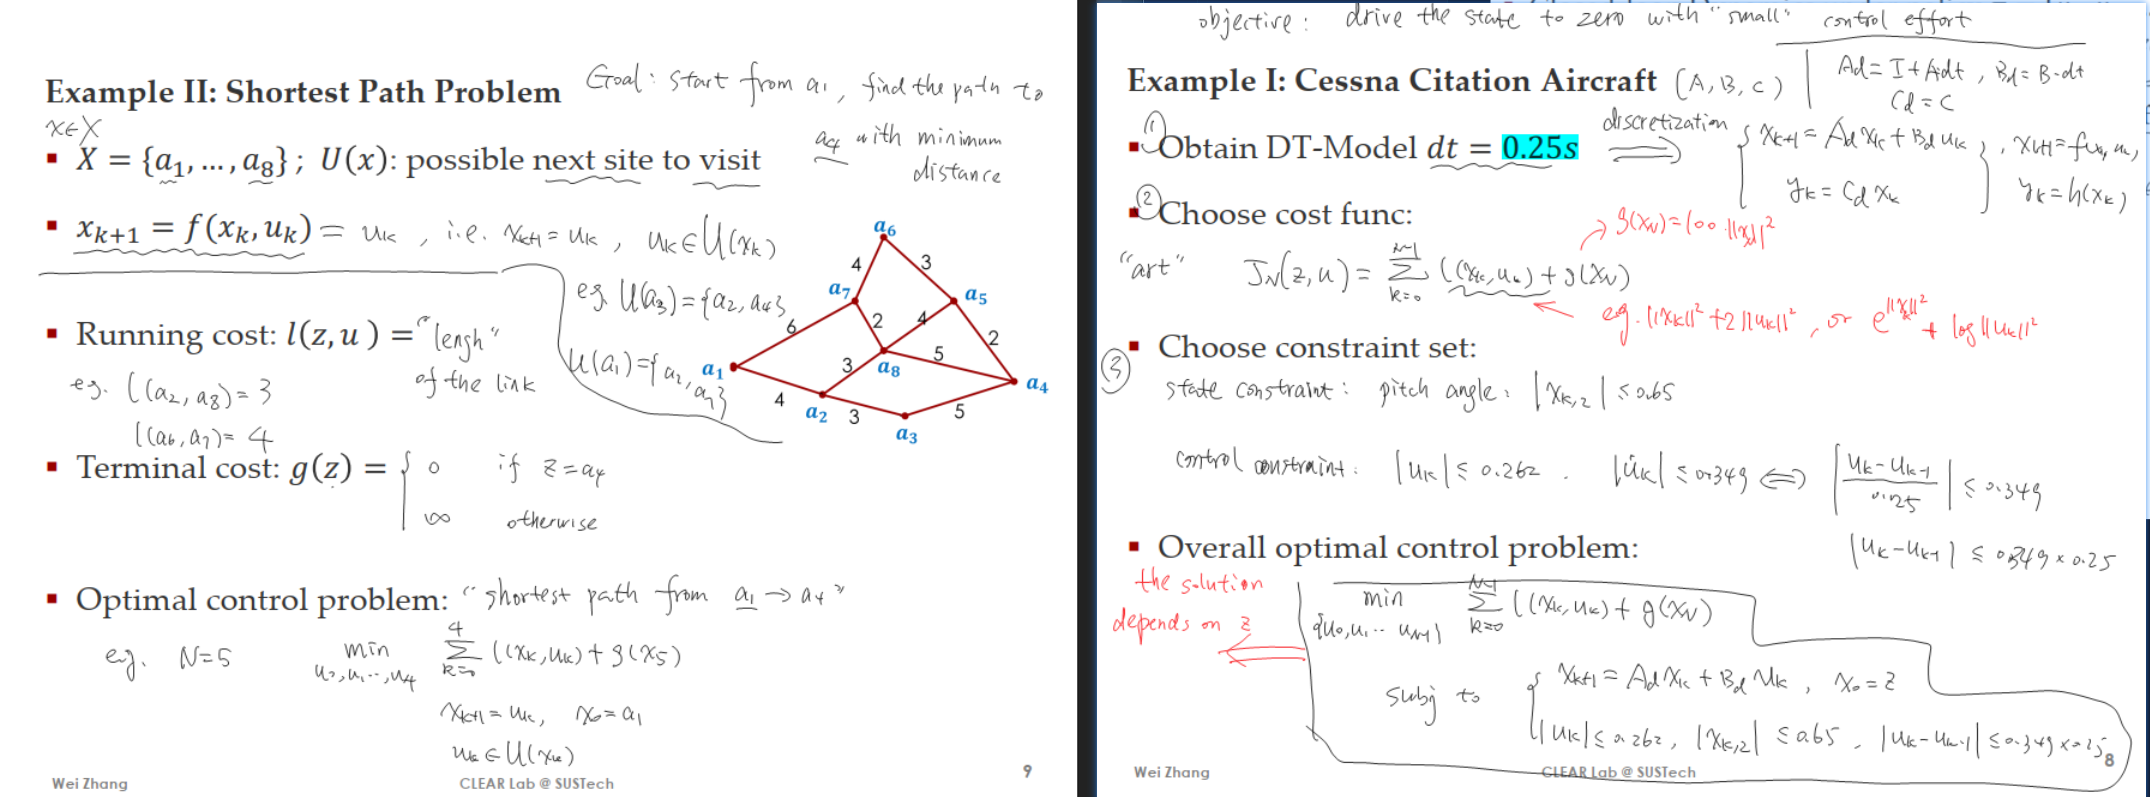 Example II: Shortest Path Problem
Goal: start from a1, find the path to
a4 with minimum
distance
x∈X
▪ X = {a1, …, a8}; U(x): possible next site to visit
▪ xk+1 = f(xk, uk) = uk , i.e. xk+1 = uk , uk ∈ U(xk)
eg. U(a3) = {a2, a4}
U(a1) = {a2, a7}
▪ Running cost: l(z, u) = "lengh"
of the link
eg. l(a2, a8) = 3
l(a6, a7) = 4
▪ Terminal cost: g(z) = { 0 if z = a4
∞ otherwise
a6
4
3
a7
a5
6
2
4
2
a1
3
a8
5
a4
4
a2
3
5
a3
▪ Optimal control problem: "shortest path from a1 → a4"
e.g. N=5 min u0,u1...,u4 4 Σ k=0 l(xk,uk) + g(x5)
xk+1 = uk, x0 = a1
uk ∈ U(xk)
Wei Zhang
CLEAR Lab @ SUSTech
9
objective: drive the state to zero with "small" control effort
Example I: Cessna Citation Aircraft (A, B, C)
Ad = I + A·dt , Bd = B·dt
Cd = C
(1)
▪ Obtain DT-Model dt = 0.25s
discretization
⟹ { xk+1 = Ad xk + Bd uk } , xk+1 = f(xk, uk)
yk = Cd xk
yk = h(xk)
(2)
▪ Choose cost func:
g(xN) = 100·||xN||²
"art" JN(z,u) = N-1 Σ k=0 l(xk,uk) + g(xN)
eg. ||xk||² + 2||uk||² , or e^||xk||² + log||uk||²
(3)
▪ Choose constraint set:
state constraint: pitch angle: |xk,2| ≤ 0.65
control constraint: |uk| ≤ 0.262 . |u̇k| ≤ 0.349 ⟺ |(uk - uk-1)/0.25| ≤ 0.349
|uk - uk-1| ≤ 0.349 × 0.25
▪ Overall optimal control problem:
the solution
depends on z
min {u0,u1...uN-1} N-1 Σ k=0 l(xk,uk) + g(xN)
subj to { xk+1 = Ad xk + Bd uk , x0 = z
|uk| ≤ 0.262, |xk,2| ≤ 0.65 , |uk - uk-1| ≤ 0.349 × 0.25
Wei Zhang
CLEAR Lab @ SUSTech
8